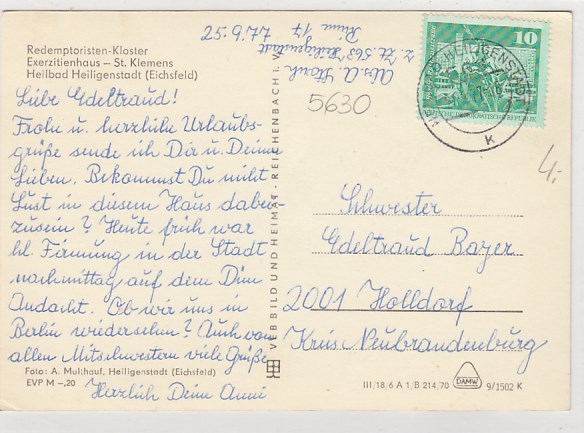 Redemptoristen-Kloster
Exerzitienhaus – St. Klemens
Heilbad Heiligenstadt (Eichsfeld)
Liebe Edeltraud!
Frohe u. herzliche Urlaubs-
grüße sende ich Dir u. Deinen
Lieben. Bekommst Du nicht
Lust in diesem Haus dabei-
zusein? Heute früh war
hl. Firmung in der Stadt
nachmittag auf dem Dün
Andacht. Ob wir uns in
Berlin wiedersehen? Auch von
allen Mitschwestern viele Grüße
Foto: A. Multhauf, Heiligenstadt (Eichsfeld)
EVP M –,20
Herzlich Deine Anni
VEB BILD UND HEIMAT · REICHENBACH I. V.
25.9.77
Abs. A.
z. Zt. 563 Heiligenstadt
17
5630
10
HEILIGENSTADT
DEUTSCHE DEMOKRATISCHE REPUBLIK
K
4.-
Schwester
Edeltraud Bayer
2001 Holldorf
Kreis Neubrandenburg
III/18/6 A 1/B 214/70
DAMW
9/1502 K